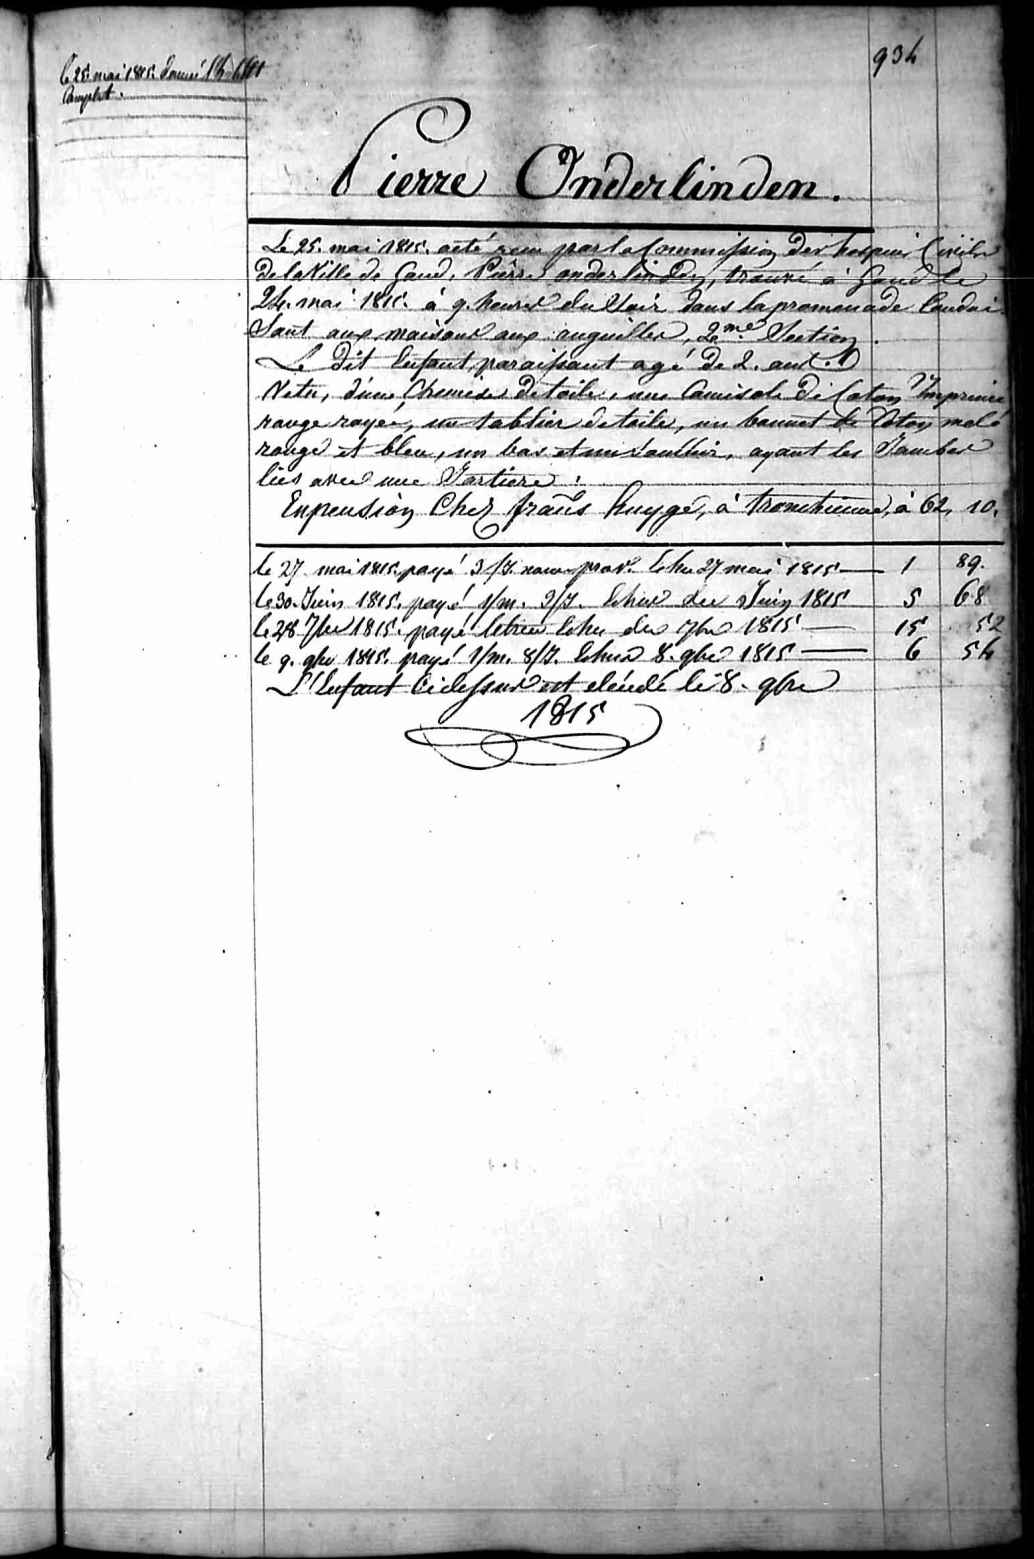 934
le 25 mai 1815. donné
Complet.
Pierre Onderlinden.
Le 25. mai 1815. a été reçu par la Commission des hospices Civils
de la Ville de Gand, Pierre onderlinden, trouvé à Gand le
24. mai 1815. à 9. heures du Soir dans la promenade Condui-
sant aux maisons aux anguilles, 2.me Section.
Le dit Enfant, paraissant agé de 2. ans.
Vetu, d'une Chemise de toile, une Camisole de Coton Imprimé
rouge rayée, un tablier de toile, un bonnet de Coton melé
rouge et bleu, un bas et un soulier, ayant les Jambes
liés avec une Jartiere.
En pension Chez frans huyge, à tronchienne, à 62, 10.
le 27 mai 1815. payé 3/J. nouv. prov. Echu 27 mai 1815 — 1 89.
le 30. Juin 1815. payé 1/m. 3/J. Echus du Juin 1815 5 68
le 28 7bre 1815. payé letrim Echu du 7bre 1815 — 15 52
le 9. 9bre 1815. payé 1/m. 8/J. Echus 8. 9bre 1815 — 6 54
L'Enfant Cidessus est décédé le 8. 9bre
1815